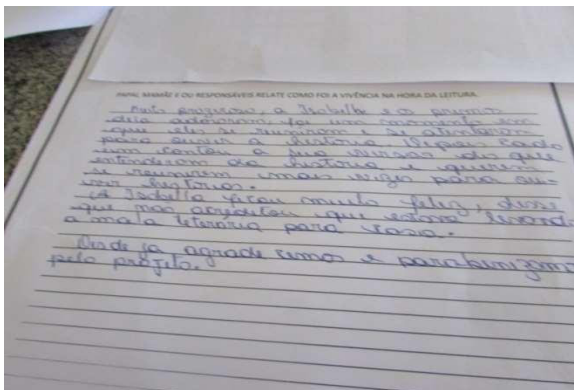 PAPAI, MAMÃE E OU RESPONSÁVEIS RELATE COMO FOI A VIVÊNCIA NA HORA DA LEITURA.
a Isabella e os primos
dela adoraram, foi um momento em
que eles se reuniram e se atentaram
para ouvir a história. Depois cada
um contou a sua versão do que
entenderam da história e querem
se reunirem mais vezes para ou-
vir histórias.
A Isabella ficou muito feliz, disse
que não acreditou que estava levando
a mala literária para casa.
Desde já agradecemos e parabenizamos
pelo projeto.